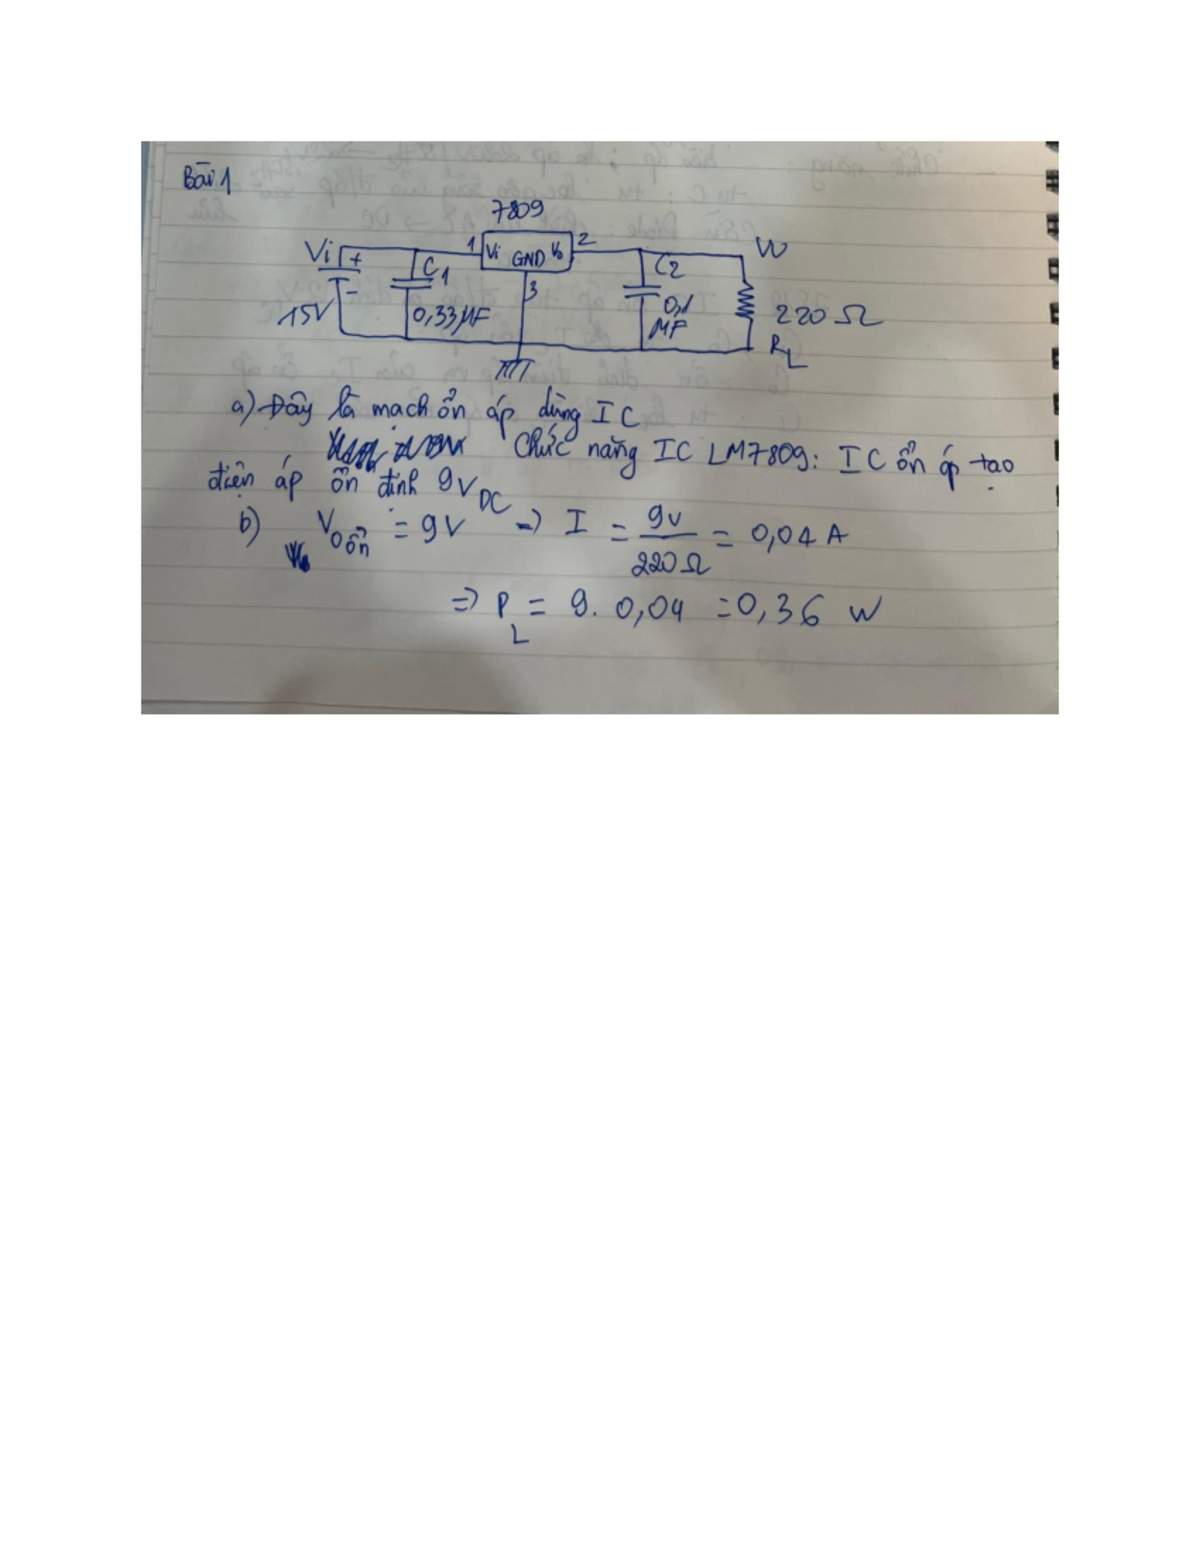 Bài 1
7809
Vi + C1 1 Vi GND Vo 2 C2 W
- 3
15V 0,33µF 0,1 MF 220 Ω
RL
a) Đây là mạch ổn áp dùng IC
Chức năng IC LM7809: IC ổn áp tạo
điện áp ổn định 9VDC
b) Vo ổn = 9V => I = 9v/220Ω = 0,04 A
=> PL = 9. 0,04 = 0,36 W